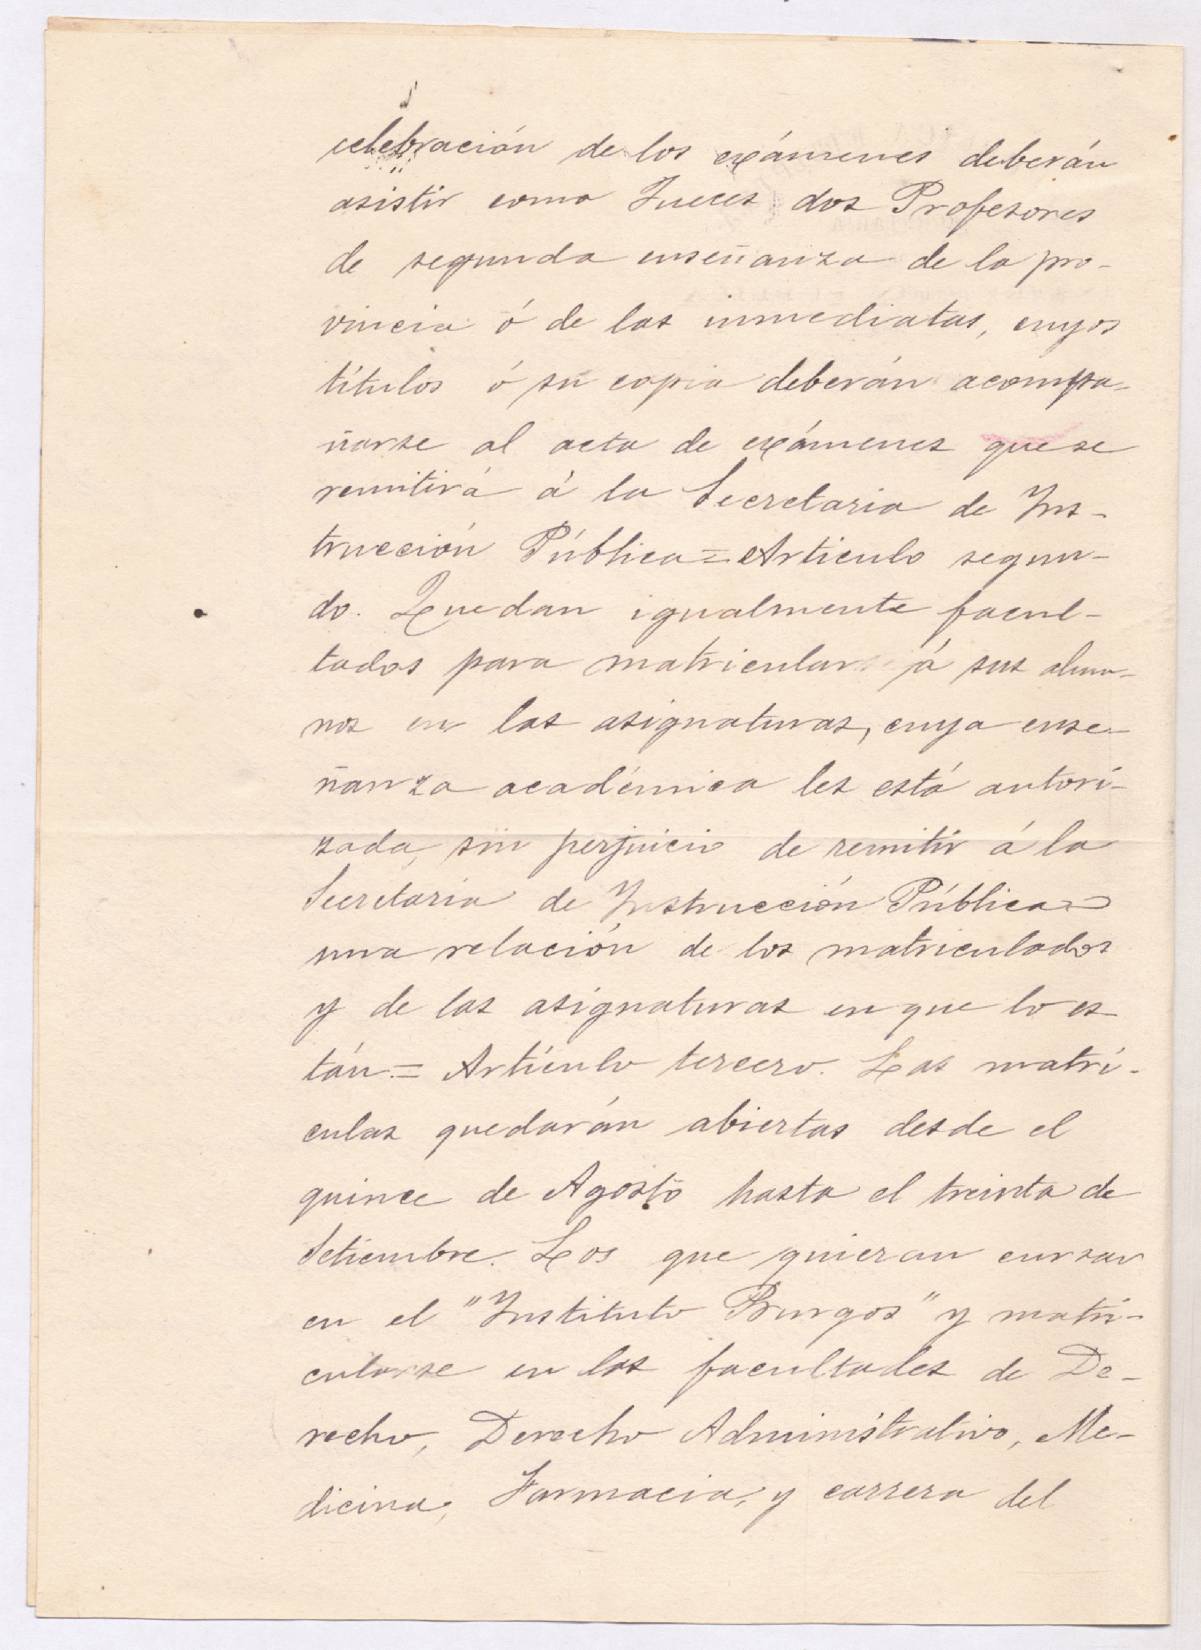 celebración de los exámenes deberán
asistir como Jueces dos Profesores
de segunda enseñanza de la pro-
vincia ó de las inmediatas, cuyos
títulos ó su copia deberán acompa-
ñarse al acta de exámenes que se
remitirá á la Secretaria de Ins-
trucción Pública = Articulo segun-
do. Quedan igualmente facul-
tados para matricular á sus alum-
nos en las asignaturas, cuya ense-
ñanza académica les está autori-
zada, sin perjuicio de remitir á la
Secretaria de Instrucción Pública =
una relación de los matriculados
y de las asignaturas en que lo es
tán = Artículo tercero. Las matrí-
culas quedarán abiertas desde el
quince de Agosto hasta el treinta de
Setiembre. Los que quieran cursar
en el "Instituto Burgos" y matri-
cularse en las facultades de De-
recho, Derecho Administrativo, Me-
dicina, Farmacia, y carrera del